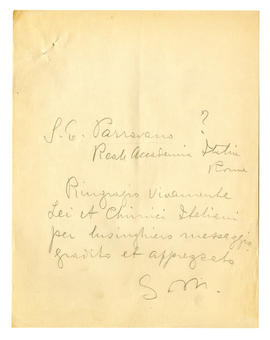 ?
S. E. Parravano
Reale Accademia Italia
Roma
Ringrazio vivamente
Lei et Chimici Italiani
per lusinghiero messaggio
gradito et apprezzato
G M.